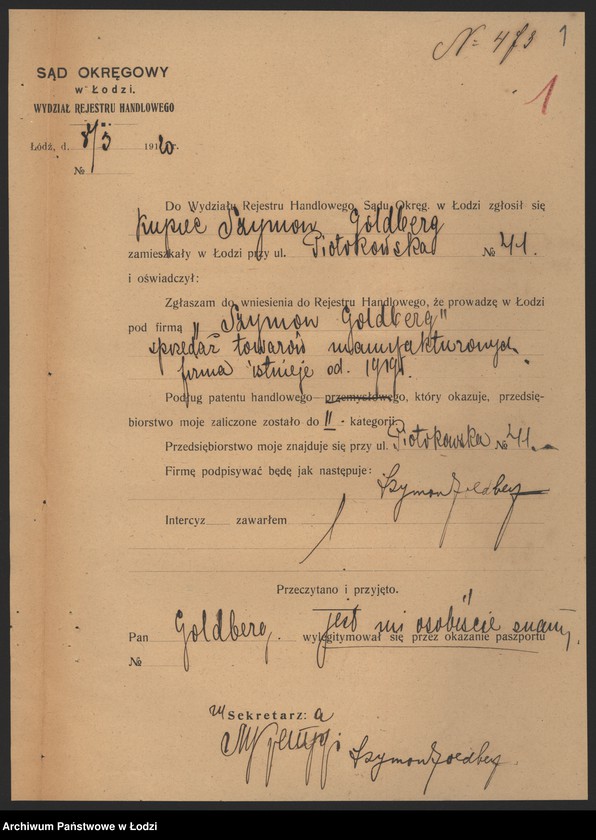 № 4/3 1
1
SĄD OKRĘGOWY
w Łodzi.
WYDZIAŁ REJESTRU HANDLOWEGO
Łódź, d. 8/3 1920 r.
№
Do Wydziału Rejestru Handlowego Sądu Okręg. w Łodzi zgłosił się
Kupiec Szymon Goldberg
zamieszkały w Łodzi przy ul. Piotrkowska № 41.
i oświadczył:
Zgłaszam do wniesienia do Rejestru Handlowego, że prowadzę w Łodzi
pod firmą „Szymon Goldberg"
sprzedaż towarów manufakturowych
firma istnieje od 1919 r.
Podług patentu handlowego przemysłowego, który okazuje, przedsię-
biorstwo moje zaliczone zostało do II - kategorji.
Przedsiębiorstwo moje znajduje się przy ul. Piotrkowska № 41.
Firmę podpisywać będę jak następuje:
Szymon Goldberg
Intercyz zawarłem
Przeczytano i przyjęto.
jest mi osobiście znany.
Pan Goldberg, wylegitymował się przez okazanie paszportu
№
Sekretarz: a
Szymon Goldberg
Archiwum Państwowe w Łodzi